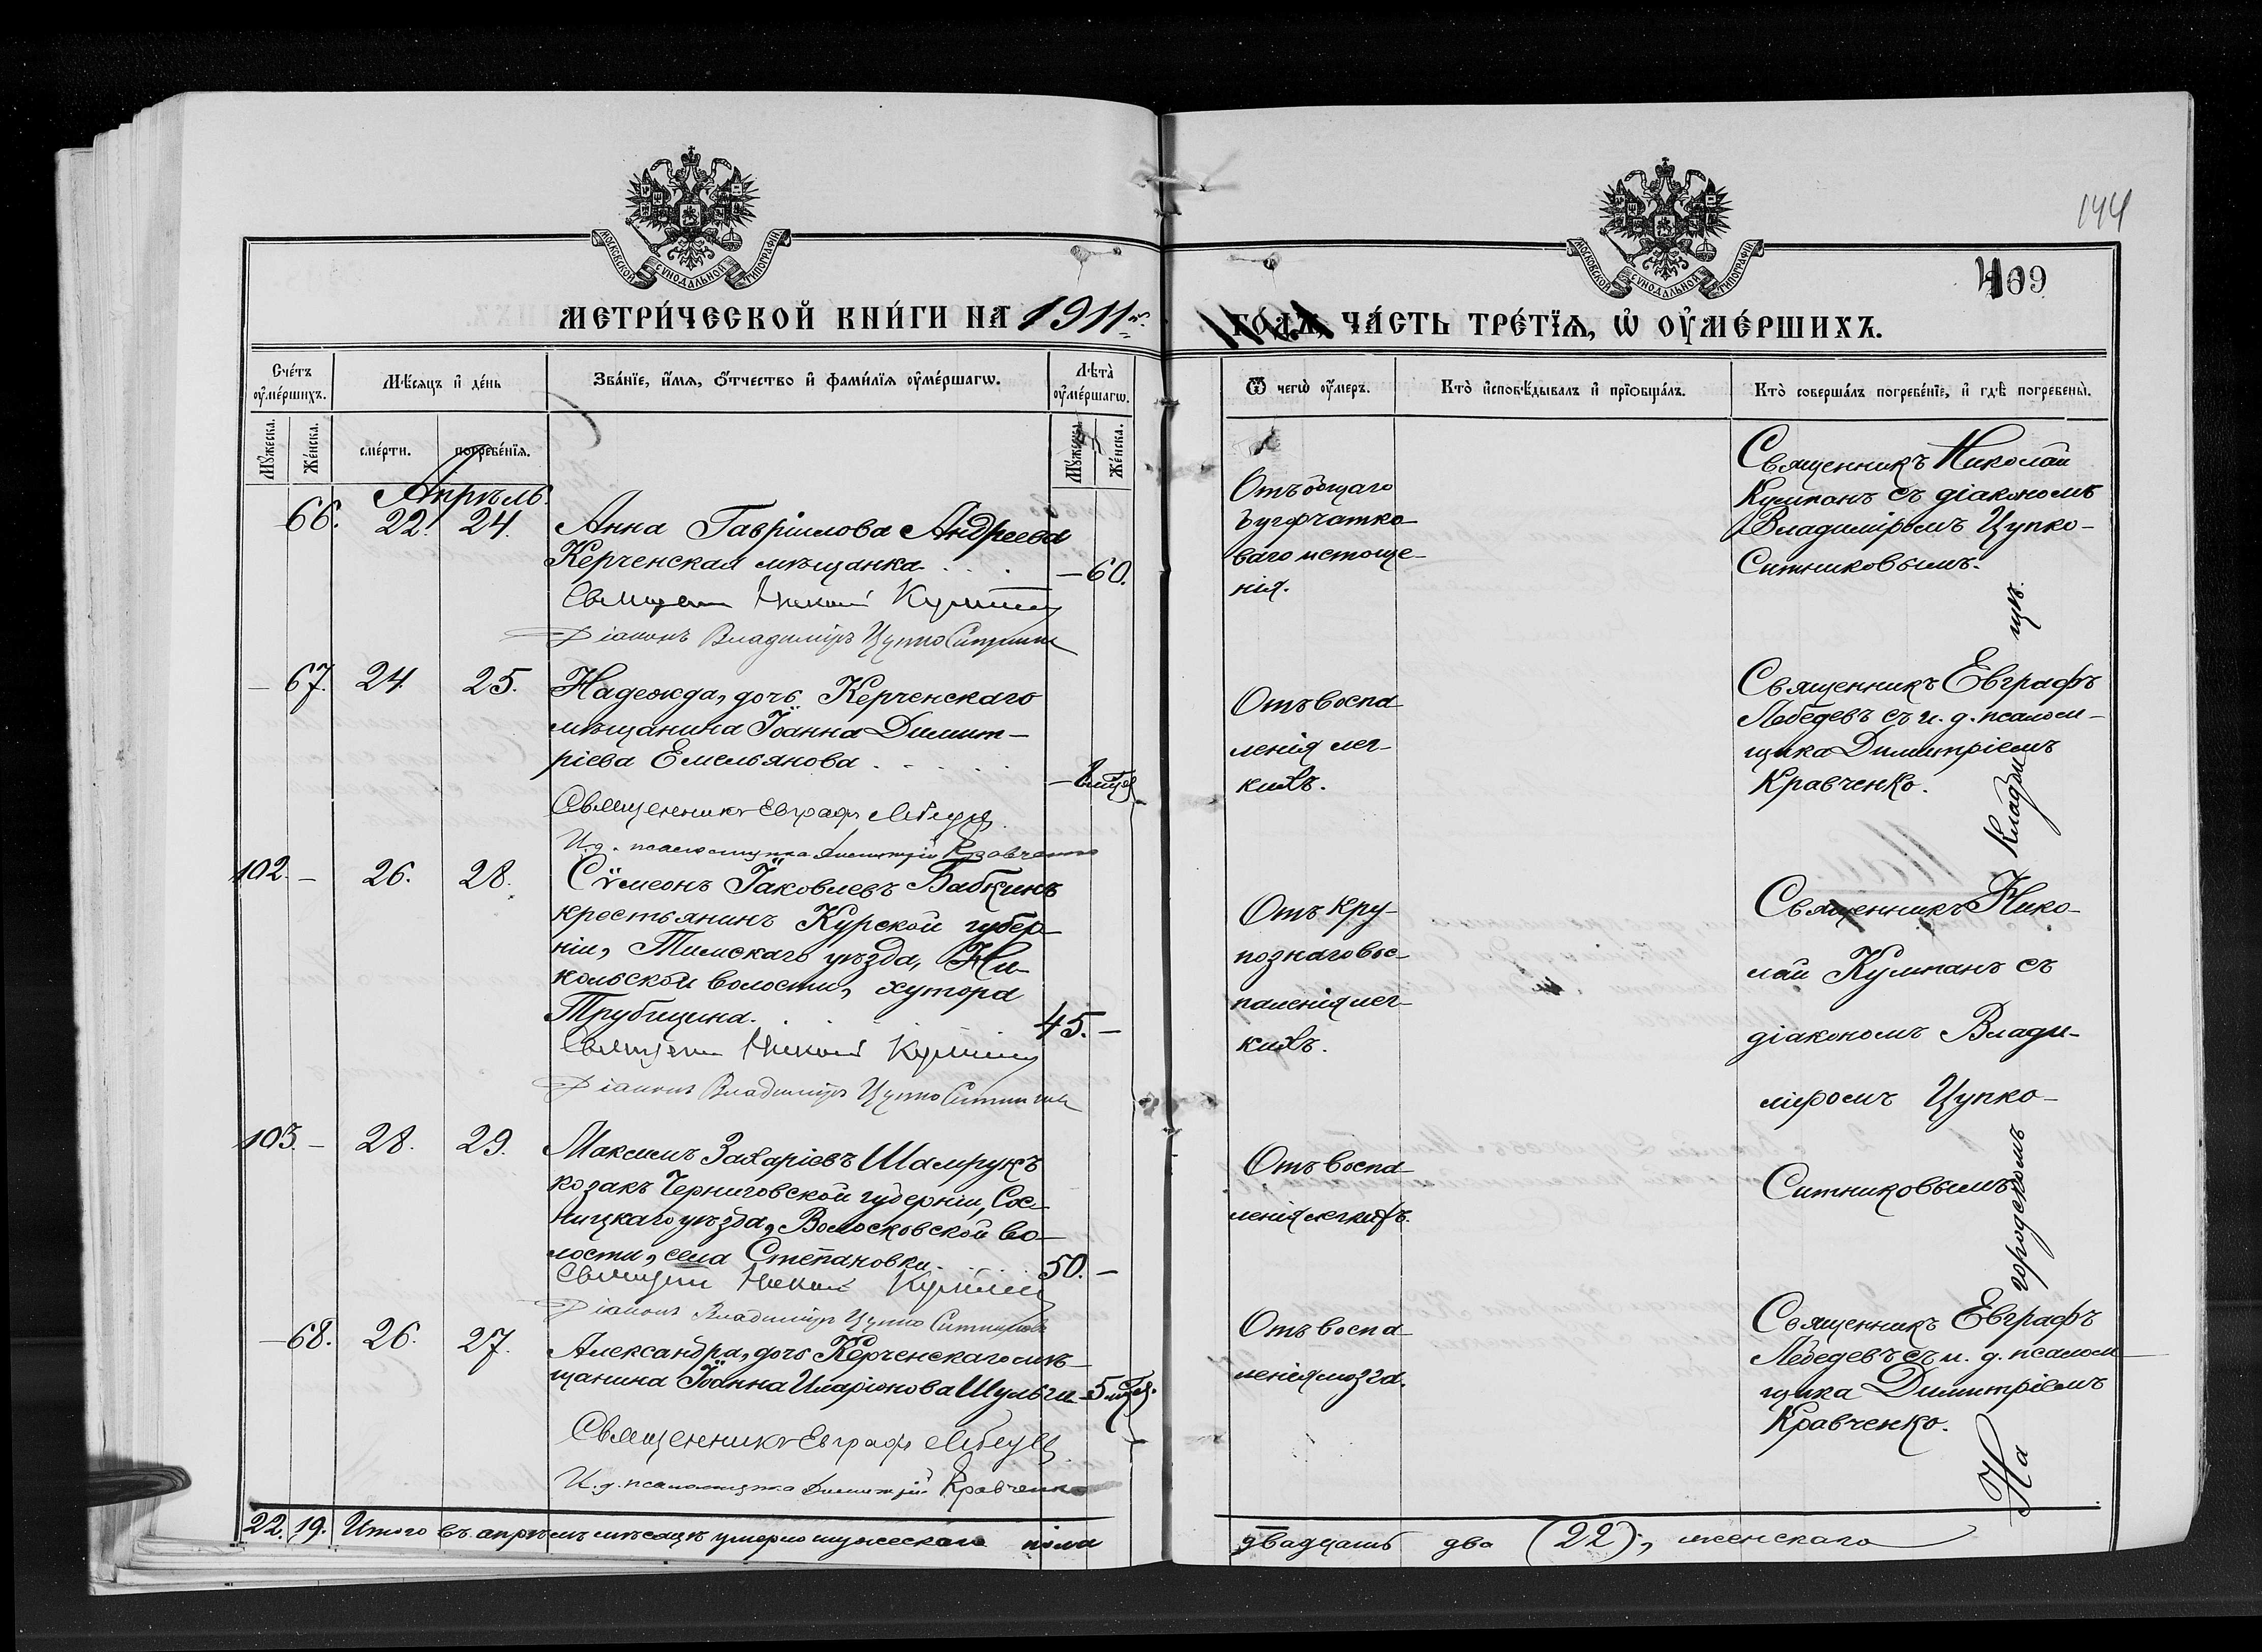 144
409
МОСКОВСКОЙ СУНОДАЛЬНОЙ ТИПОГРАФІИ
МОСКОВСКОЙ СУНОДАЛЬНОЙ ТИПОГРАФІИ
МЕТРИ́ЧЕСКОЙ КНИ́ГИ НА 1911 г.
ГО́ДЪ, ЧА́СТЬ ТРЕ́ТЇѦ, Ѡ҆ ОУ҆МЕ́РШИХЪ.
Сче́тъ оу҆ме́ршихъ.
Мѣ́сѧцъ и҆ де́нь
Зва́нїе, и҆́мѧ, ѻ҆́тчество и҆ фами́лїѧ оу҆ме́ршагѡ.
Лѣ́та оу҆ме́ршагѡ.
Ѿ чегѡ̀ оу҆́меръ.
Кто̀ и҆сповѣ́дывалъ и҆ прїѡбща́лъ.
Кто̀ соверша́лъ погребе́нїе, и҆ гдѣ̀ погребены̀.
Мꙋ́жеска.
Же́нска.
сме́рти.
погребе́нїѧ.
Мꙋ́жеска.
Же́нска.
Апрѣль.
66. 22. 24. Анна Гавріилова Андреева
Керченская мѣщанка . . . — 60.
Священ Николай Кумпан
Діаконъ Владиміръ Цупко Ситников
Отъ общаго
ваго истоще-
нія.
Священникъ Николай
Кумпанъ съ діакономъ
Владиміромъ Цупко-
Ситниковымъ.
— 67. 24. 25. Надежда, дочь Керченскаго
мѣщанина Іоанна Димит-
ріева Емельянова . . . . .
Священникъ Евграфъ Лебедев
И.д. псаломщика Димитрій Кравченко
Отъ воспа-
ленія лег-
кихъ.
Священникъ Евграфъ
Лебедевъ съ и. д. псалом-
щика Димитріемъ
Кравченко.
102. — 26. 28. Сѵмеонъ Іаковлевъ Бабкинъ
крестьянинъ Курской губер-
ніи, Тимскаго уѣзда, Ни-
кольской волости, хутора
Трубицина. . . . . 45. —
Священ Николай Кумпан
Діаконъ Владиміръ Цупко Ситников
Отъ кру-
познаго вос-
паленія лег-
кихъ.
Священникъ Нико-
лай Кумпанъ съ
діакономъ Влади-
міромъ Цупко-
Ситниковымъ
103. — 28. 29. Максимъ Захаріевъ Шамрукъ
козакъ Черниговской губерніи, Сос-
ницкаго уѣзда, Волосковской во-
лости, села Степановки. . . . 50. —
Священ Николай Кумпан
Діаконъ Владиміръ Цупко Ситников
Отъ воспа-
ленія легкихъ.
— 68. 26. 27. Александра, дочь Керченскаго мѣ-
щанина Іоанна Иларіонова Шульги — 5 мѣс.
Священникъ Евграфъ Лебедев
И.д. псаломщика Димитрій Кравченко
Отъ воспа-
ленія мозга.
Священникъ Евграфъ
Лебедевъ съ и. д. псалом-
щика Димитріемъ
Кравченко.
На городскомъ кладбищѣ.
22. 19. Итого въ апрѣлѣ мѣсяцѣ умерло мужескаго пола
двадцать два (22); женскаго